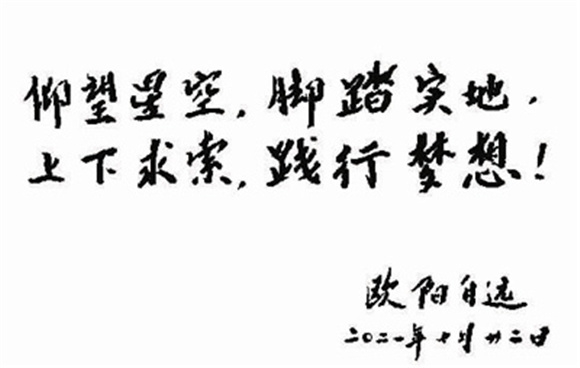 仰望星空,脚踏实地,
上下求索,践行梦想!
欧阳自远
二〇二一年七月廿二日